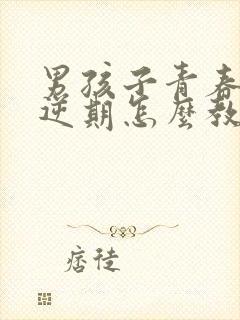 男孩子青春
逆期怎麼教
痞徒